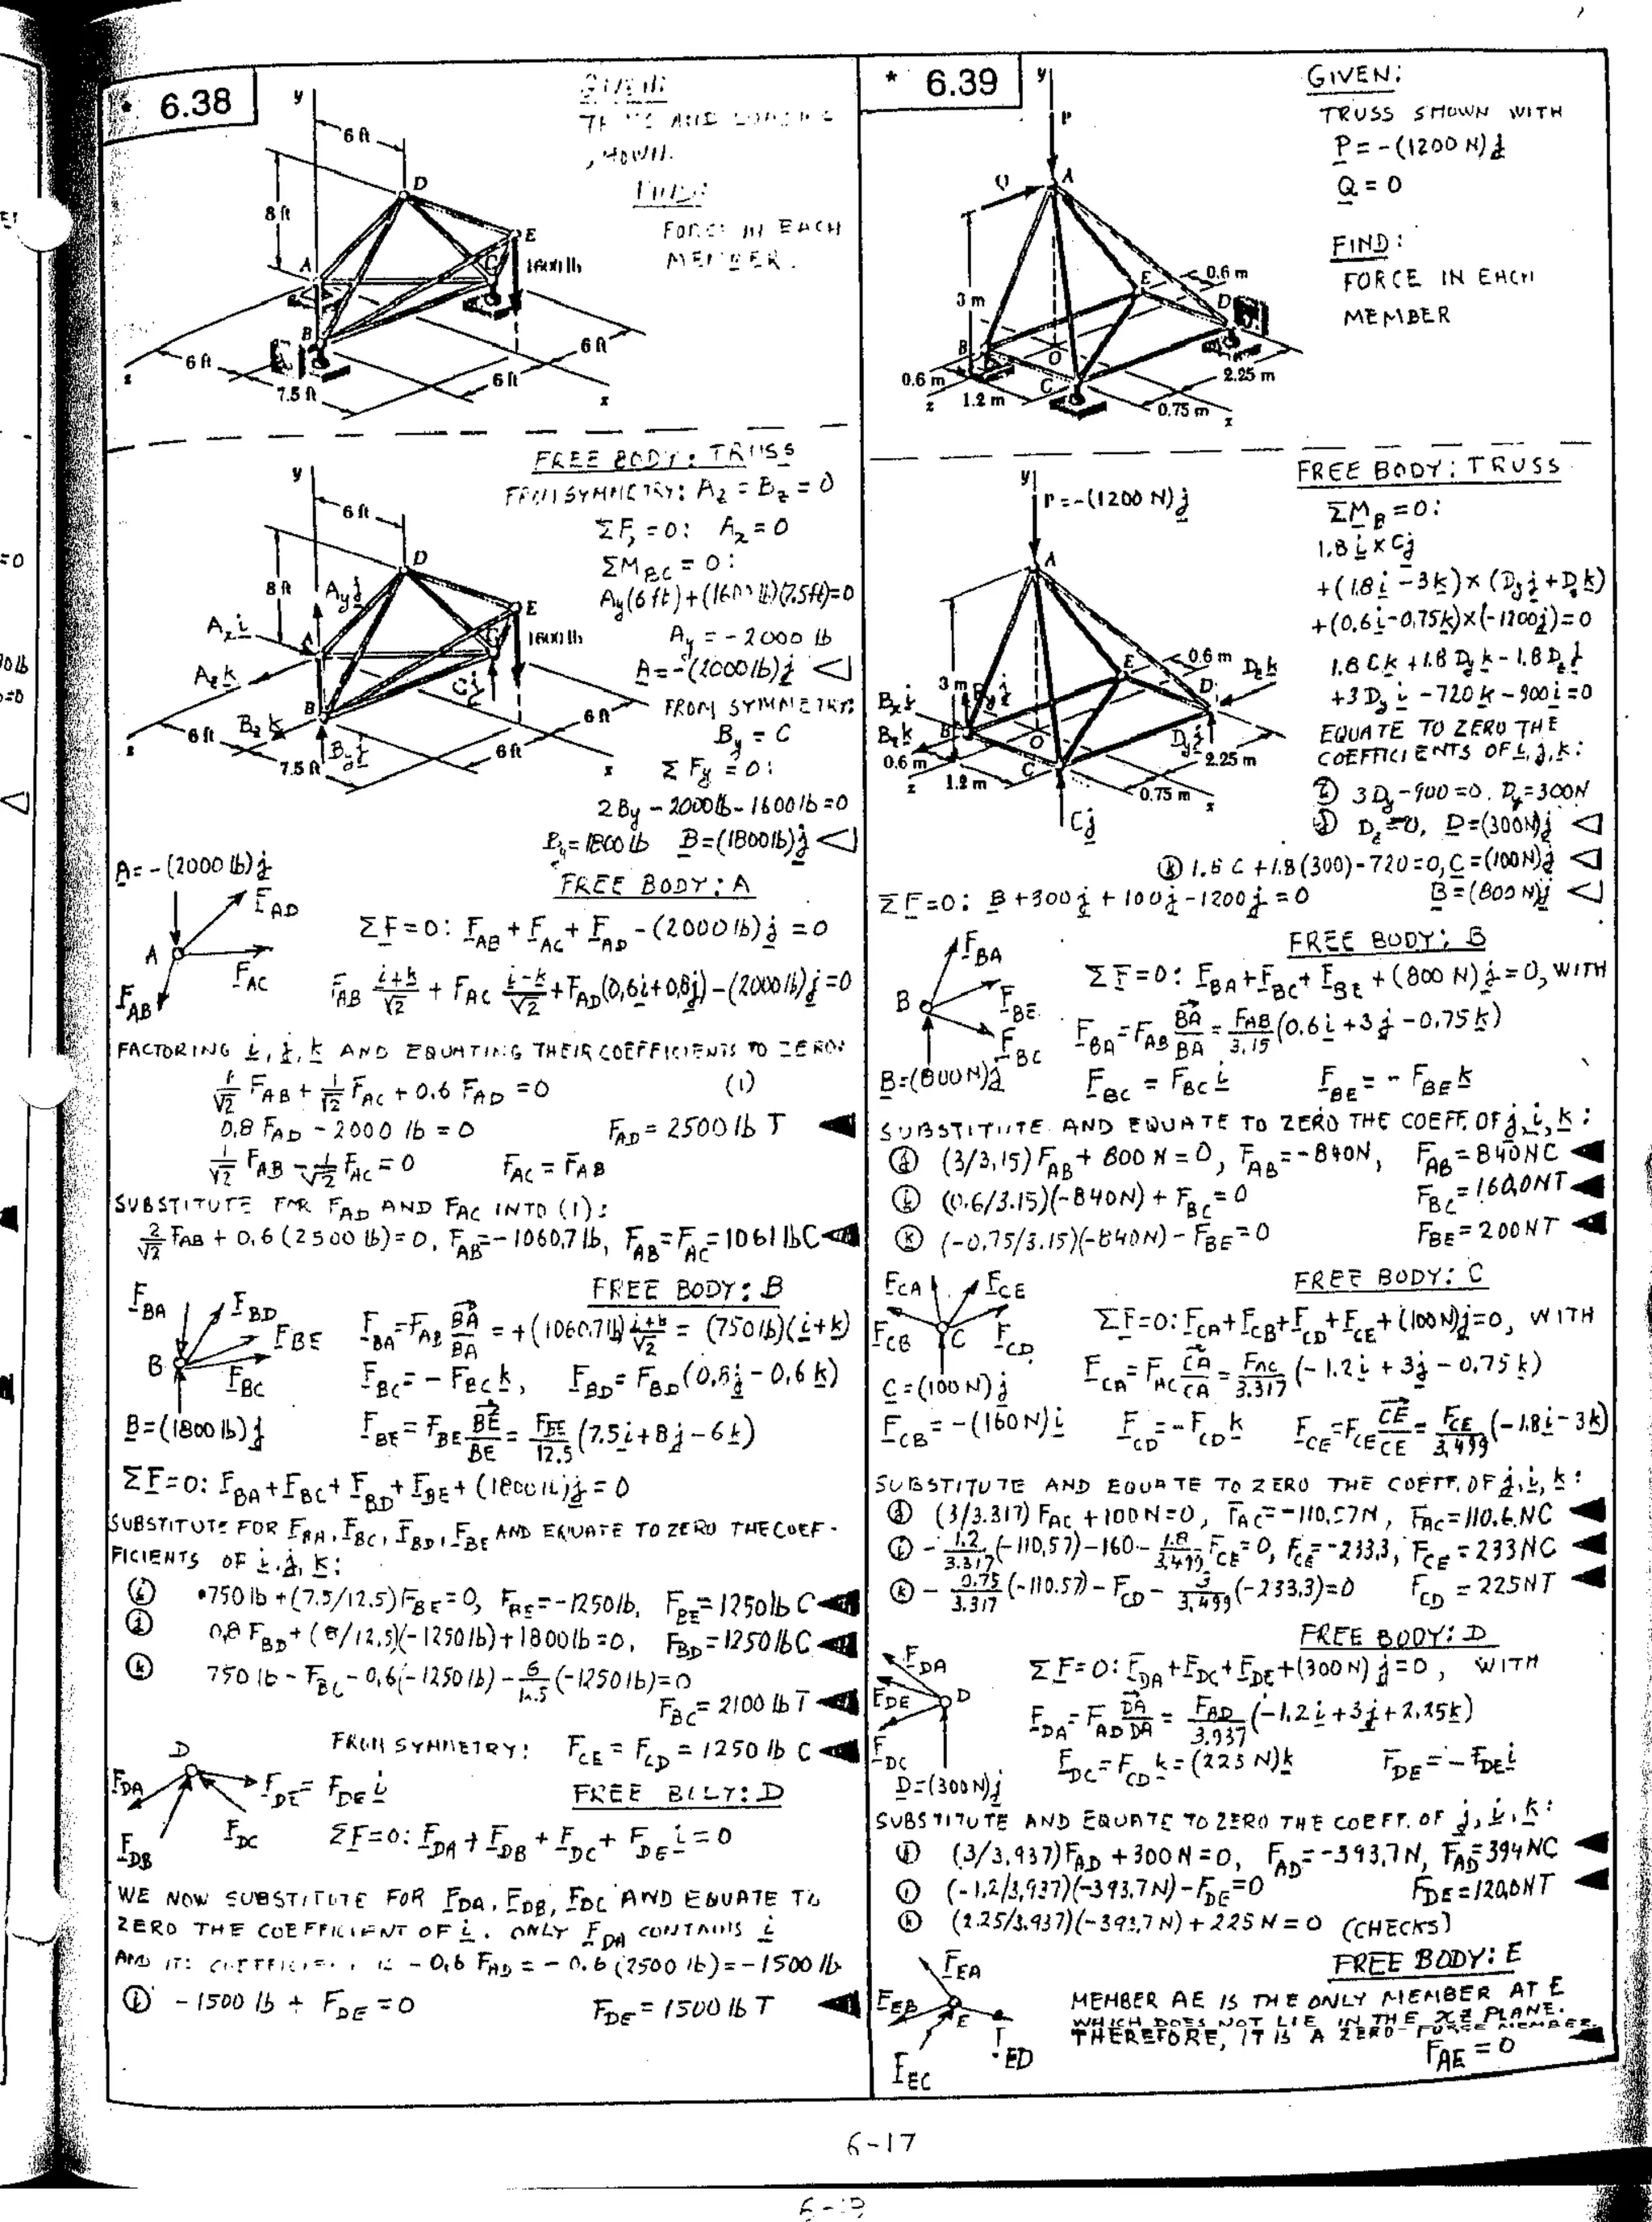 * 6.38
GIVEN:
TRUSS AND LOADING
SHOWN.
FIND:
FORCE IN EACH
MEMBER.
y
6 ft
D
8 ft
E
A
C
1600 lb
B
6 ft
6 ft
z
7.5 ft
6 ft
x
FREE BODY: TRUSS
FROM SYMMETRY: A_z = B_z = 0
ΣF = 0: A_x = 0
ΣM_BC = 0:
A_y(6 ft)+(1600 lb)(7.5ft)=0
A_y = -2000 lb
A = -(2000 lb)j ◁
FROM SYMMETRY:
B_y = C
ΣF_y = 0:
2B_y - 2000 lb - 1600 lb = 0
B_y = 1800 lb B = (1800 lb)j ◁
y
6 ft
D
8 ft
A_y j
E
A_x i
A
C
1600 lb
A_z k
C j
B
B_z k
B_y j
6 ft
6 ft
z
7.5 ft
6 ft
x
A = -(2000 lb)j
F_AD
A
F_AC
F_AB
FREE BODY: A
ΣF = 0: F_AB + F_AC + F_AD - (2000 lb)j = 0
F_AB (i+k)/√2 + F_AC (i-k)/√2 + F_AD(0.6i+0.8j) - (2000 lb)j = 0
FACTORING i, j, k AND EQUATING THEIR COEFFICIENTS TO ZERO:
1/√2 F_AB + 1/√2 F_AC + 0.6 F_AD = 0 (1)
0.8 F_AD - 2000 lb = 0 F_AD = 2500 lb T ◀
1/√2 F_AB - 1/√2 F_AC = 0 F_AC = F_AB
SUBSTITUTE FOR F_AD AND F_AC INTO (1):
2/√2 F_AB + 0.6 (2500 lb) = 0, F_AB = -1060.7 lb, F_AB = F_AC = 1061 lb C ◀
FREE BODY: B
F_BA
F_BD
F_BE
B
F_BC
B = (1800 lb)j
F_BA = F_AB BA/BA = +(1060.7 lb) (i+k)/√2 = (750 lb)(i+k)
F_BC = - F_BC k, F_BD = F_BD (0.8j - 0.6k)
F_BE = F_BE BE/BE = F_BE/12.5 (7.5i + 8j - 6k)
ΣF = 0: F_BA + F_BC + F_BD + F_BE + (1800 lb)j = 0
SUBSTITUTE FOR F_BA, F_BC, F_BD, F_BE AND EQUATE TO ZERO THE COEF-
FICIENTS OF i, j, k:
(i) 750 lb + (7.5/12.5)F_BE = 0, F_BE = -1250 lb, F_BE = 1250 lb C ◀
(j) 0.8 F_BD + (8/12.5)(-1250 lb) + 1800 lb = 0, F_BD = 1250 lb C ◀
(k) 750 lb - F_BC - 0.6(-1250 lb) - 6/12.5 (-1250 lb) = 0
F_BC = 2100 lb T ◀
FROM SYMMETRY: F_CE = F_CD = 1250 lb C ◀
FREE BODY: D
D
F_DA
F_DE = F_DE i
F_DB
F_DC
ΣF = 0: F_DA + F_DB + F_DC + F_DE i = 0
WE NOW SUBSTITUTE FOR F_DA, F_DB, F_DC AND EQUATE TO
ZERO THE COEFFICIENT OF i. ONLY F_DA CONTAINS i
AND ITS COEFFICIENT IS - 0.6 F_AD = - 0.6 (2500 lb) = -1500 lb
(i) -1500 lb + F_DE = 0 F_DE = 1500 lb T ◀
* 6.39
GIVEN:
TRUSS SHOWN WITH
P = -(1200 N)j
Q = 0
FIND:
FORCE IN EACH
MEMBER
y
P
Q
A
0.6 m
E
3 m
D
B
O
C
0.6 m
2.25 m
z
1.2 m
0.75 m
x
FREE BODY: TRUSS
ΣM_B = 0:
1.8 i × Cj
+(1.8i - 3k) × (D_y j + D_z k)
+(0.6i - 0.75k) × (-1200j) = 0
1.8 Ck + 1.8 D_y k - 1.8 D_z j
+3D_y i - 720 k - 900 i = 0
EQUATE TO ZERO THE
COEFFICIENTS OF i, j, k:
(i) 3D_y - 900 = 0, D_y = 300N
(j) D_z = 0, D = (300N)j ◁
(k) 1.8 C + 1.8(300) - 720 = 0, C = (100N)j ◁
ΣF = 0: B + 300j + 100j - 1200j = 0 B = (800 N)j ◁
y
P = -(1200 N)j
A
0.6 m
E
D_z k
3 m
B_y j
D
B_x i
B_z k
B
O
D_y j
0.6 m
2.25 m
C
z
1.2 m
0.75 m
x
Cj
FREE BODY: B
F_BA
B
F_BE
F_BC
B = (800N)j
ΣF = 0: F_BA + F_BC + F_BE + (800 N)j = 0, WITH
F_BA = F_AB BA/BA = F_AB/3.15 (0.6i + 3j - 0.75k)
F_BC = F_BC i F_BE = - F_BE k
SUBSTITUTE AND EQUATE TO ZERO THE COEFF. OF j, i, k:
(j) (3/3.15) F_AB + 800 N = 0, F_AB = -840N, F_AB = 840N C ◀
(i) (0.6/3.15)(-840N) + F_BC = 0 F_BC = 160.0N T ◀
(k) (-0.75/3.15)(-840N) - F_BE = 0 F_BE = 200N T ◀
FREE BODY: C
F_CA
F_CE
F_CB
C
F_CD
C = (100N)j
ΣF = 0: F_CA + F_CB + F_CD + F_CE + (100N)j = 0, WITH
F_CA = F_AC CA/CA = F_AC/3.317 (-1.2i + 3j - 0.75k)
F_CB = -(160N)i F_CD = -F_CD k F_CE = F_CE CE/CE = F_CE/3.499 (-1.8i - 3k)
SUBSTITUTE AND EQUATE TO ZERO THE COEFF. OF j, i, k:
(j) (3/3.317) F_AC + 100N = 0, F_AC = -110.57N, F_AC = 110.6N C ◀
(i) - 1.2/3.317 (-110.57) - 160 - 1.8/3.499 F_CE = 0, F_CE = -233.3, F_CE = 233N C ◀
(k) - 0.75/3.317 (-110.57) - F_CD - 3/3.499 (-233.3) = 0 F_CD = 225N T ◀
FREE BODY: D
F_DA
F_DE
D
F_DC
D = (300N)j
ΣF = 0: F_DA + F_DC + F_DE + (300N)j = 0, WITH
F_DA = F_AD DA/DA = F_AD/3.937 (-1.2i + 3j + 2.25k)
F_DC = F_CD k = (225 N)k F_DE = -F_DE i
SUBSTITUTE AND EQUATE TO ZERO THE COEFF. OF j, i, k:
(j) (3/3.937)F_AD + 300N = 0, F_AD = -393.7N, F_AD = 394N C ◀
(i) (-1.2/3.937)(-393.7N) - F_DE = 0 F_DE = 120.0N T ◀
(k) (2.25/3.937)(-393.7N) + 225N = 0 (CHECKS)
FREE BODY: E
F_EA
F_EB
E
F_ED
F_EC
MEMBER AE IS THE ONLY MEMBER AT E
WHICH DOES NOT LIE IN THE XZ PLANE.
THEREFORE, IT IS A ZERO-FORCE MEMBER.
F_AE = 0 ◀
6-17